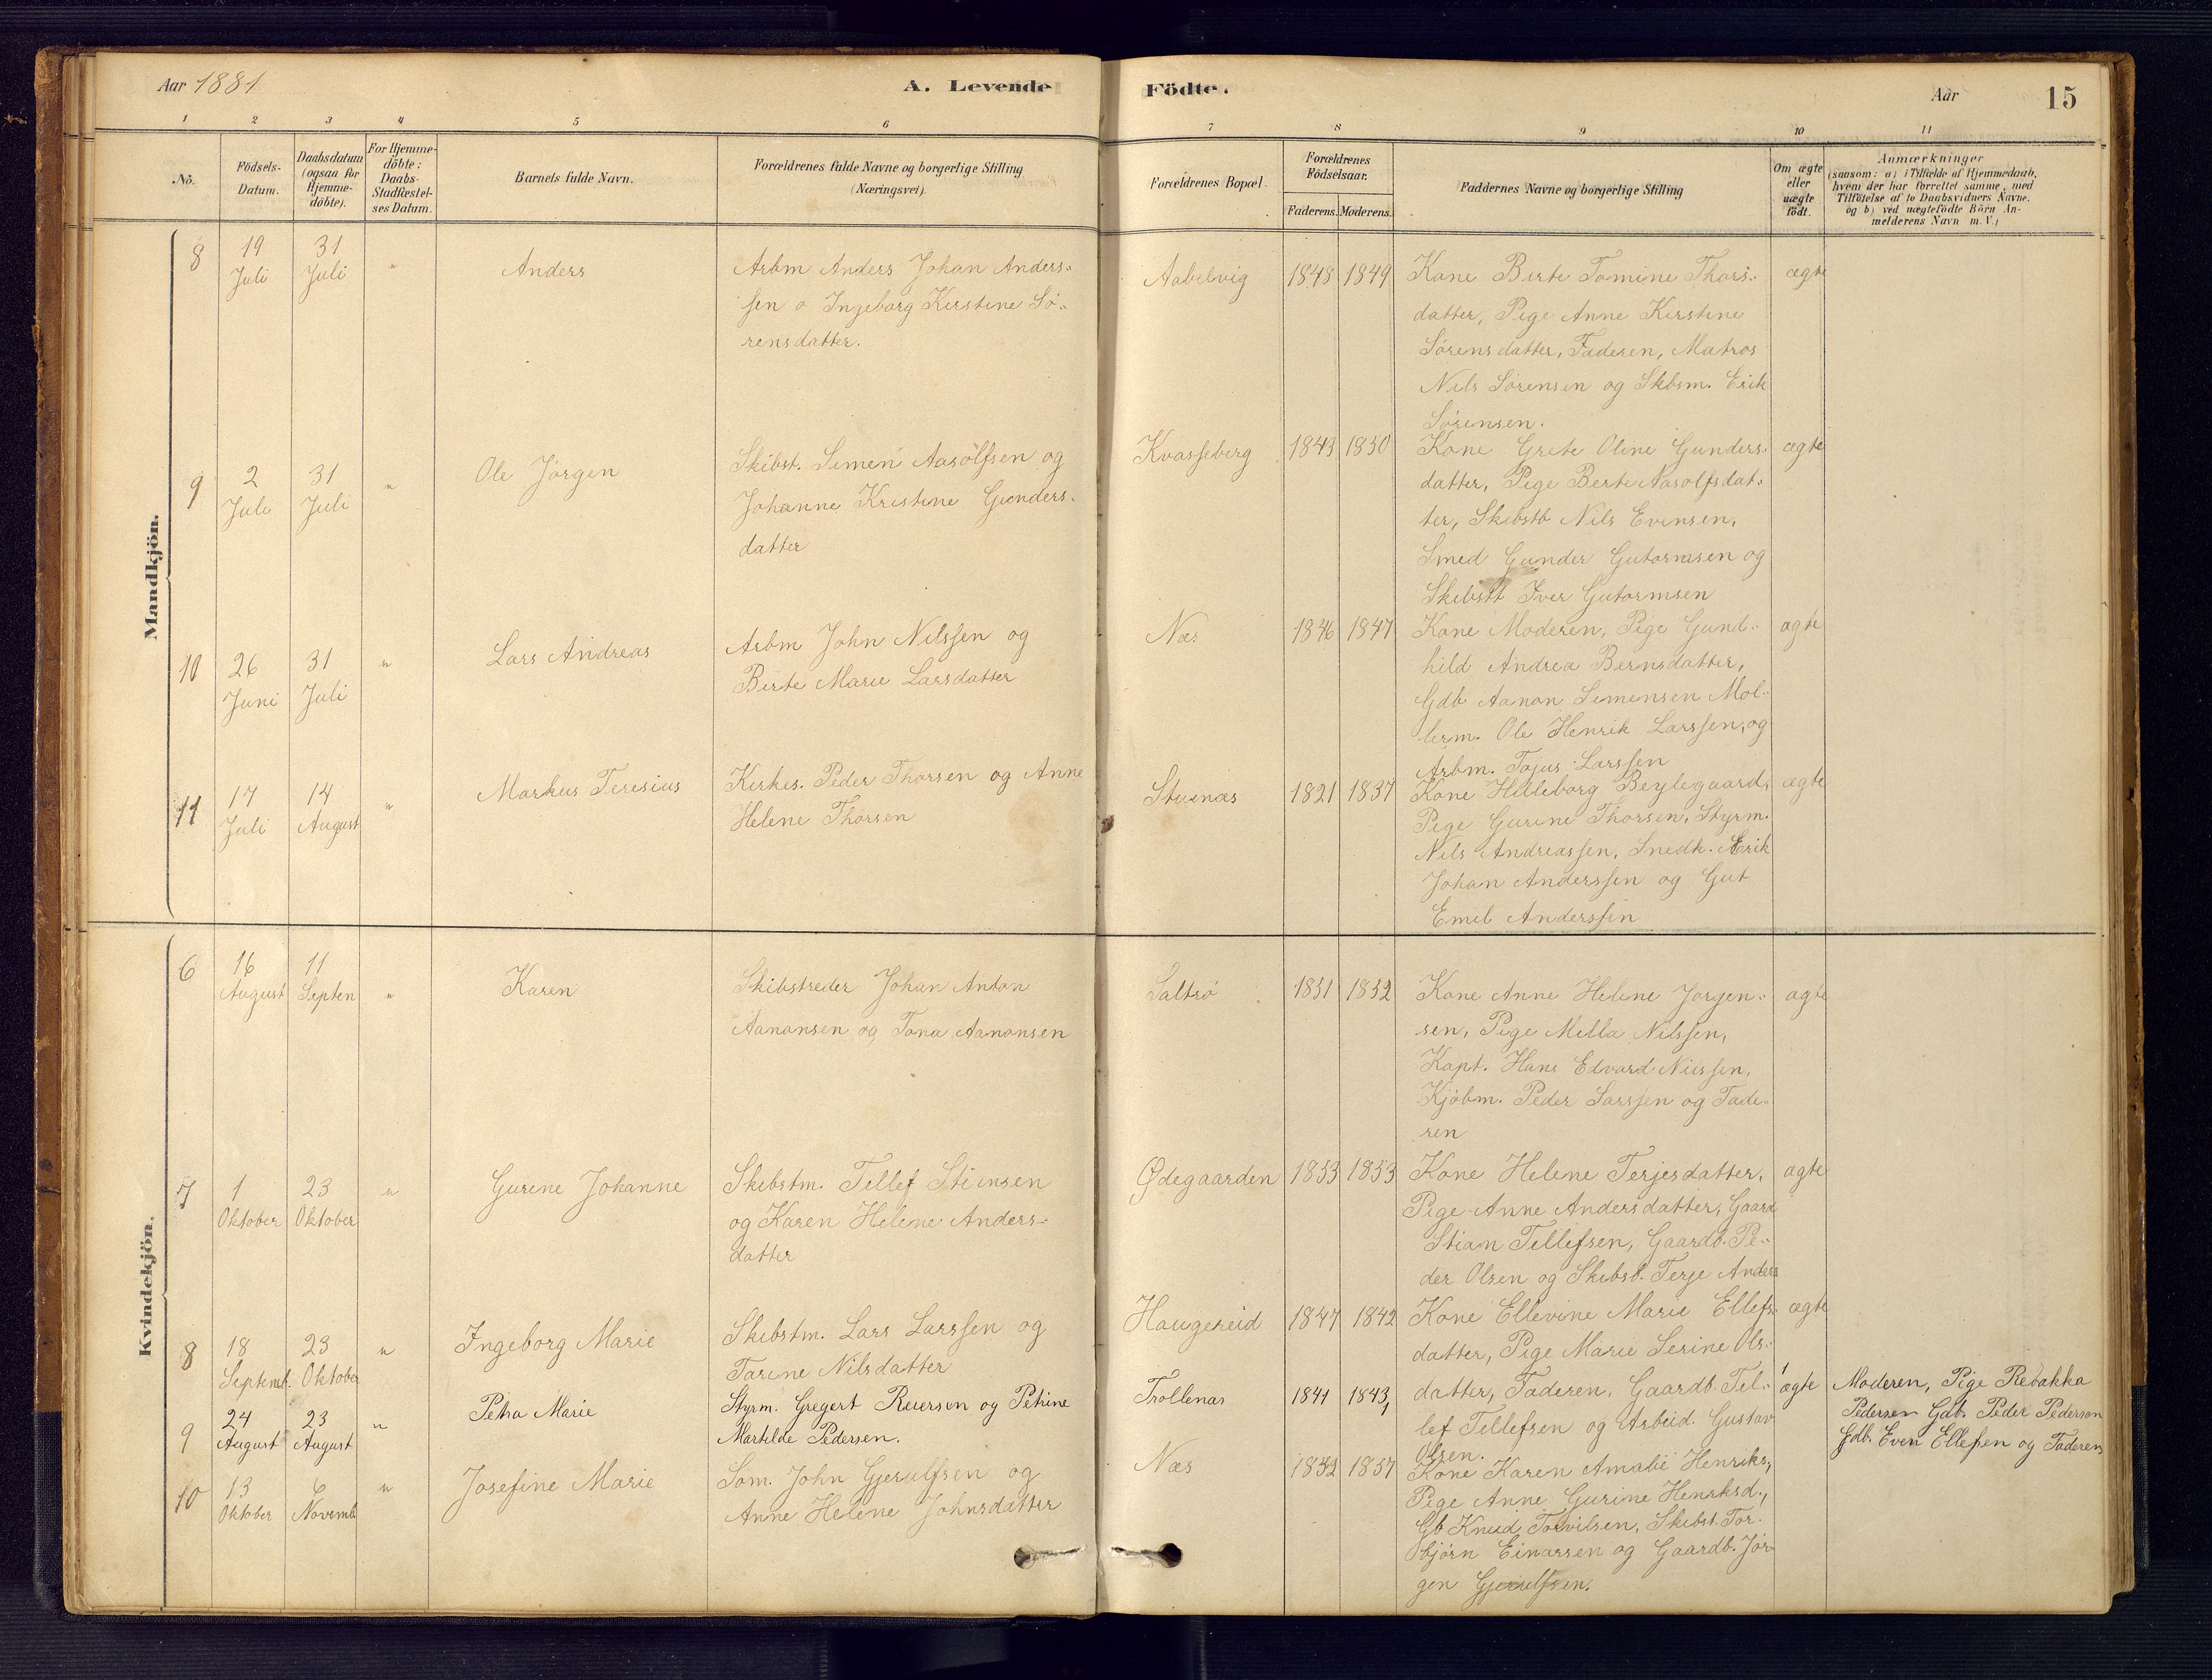 Aar 1881
A. Levende
Födte.
Aar
15
1 2 3 4 5 6 7 8 9 10 11
No.
Födsels-Datum.
Daabsdatum (ogsaa for Hjemme-döbte).
For Hjemme-döbte: Daabs-Stadfæstel-ses Datum.
Barnets fulde Navn.
Forældrenes fulde Navne og borgerlige Stilling (Næringsvei).
Forældrenes Bopæl.
Forældrenes Födselsaar.
Faderens. Moderens.
Faddernes Navne og borgerlige Stilling
Om ægte eller uægte födt.
Anmærkninger
(saasom: a) i Tilfælde af Hjemmedaab,
hvem der har forrettet samme, med
Tilföielse af to Daabsvidners Navne.
og b) ved uægtefödte Börn An-
melderens Navn m. V.)
Mandkjön.
8 19 Juli 31 Juli " Anders
Arbm Anders Johan Anders-
sen o Ingeborg Kirstine Sö-
rensdatter.
Aabelvig 1848 1849
Kone Birte Tomine Thors-
datter, Pige Anne Kirstine
Sörensdatter, Faderen, Matros
Nils Sörensen og Skbsm. Erik
Sörensen.
ægte
9 2 Juli 31 Juli " Ole Jörgen
Skibst. Simen Aasolfsen og
Johanne Kristine Gunders-
datter
Kvasseberg 1843 1850
Kone Grete Oline Gunders-
datter, Pige Berte Aasolfsdat-
ter, Skibstb Nils Evensen,
Smed Gunder Gutormsen og
Skibstt Iver Gutormsen
ægte
10 26 Juni 31 Juli " Lars Andreas
Arbm John Nilssen og
Birte Marie Larsdatter
Næs 1846 1847
Kone Moderen, Pige Gund-
hild Andrea Bernsdatter,
Gdb Aanon Simensen Mol-
lerm. Ole Henrik Larssen, og
Arbm. Larssen
ægte
11 17 Juli 14 August " Markus Teresius
Kirkes. Peder Thorsen og Anne
Helene Thorsen
Stuenæs 1821 1837
Kone Hilleborg Beylegaard,
Pige Gurine Thorsen, Styrm.
Nils Andreassen, Snedk. Erik
Johan Anderssen og Gut
Emil Anderssen
ægte
Kvindekjön.
6 16 August 11 Septen " Karen
Skibstreder Johan Anton
Aanonsen og Tona Aanonsen
Saltrö 1831 1832
Kone Anne Helene Jorgen-
sen, Pige Milla Nilssen,
Kapt. Hans Edvard Niessen,
Kjöbm. Peder Larssen og Fade-
ren
ægte
7 1 Oktober 23 Oktober " Gurine Johanne
Skibstm. Tellef Stiensen
og Karen Helene Anders-
datter
Ødegaarden 1853 1853
Kone Helene Terjesdatter,
Pige Anne Andersdatter, Gaard
Stian Tellefsen, Gaardb. Pe-
der Olsen og Skibsb. Terje Anders
ægte
8 18 Septemb. 23 Oktober " Ingeborg Marie
Skibstm. Lars Larssen og
Tarine Nilsdatter
Haugereid 1847 1842
Kone Ellevine Marie Ellefs-
datter, Pige Marie Serine Ols-
datter, Faderen, Gaardb. Tel-
lef Tellefsen og Arbeid. Gustav
Olsen.
ægte
9 24 August 23 August " Petra Marie
Styrm. Gregert Reiersen og Petrine
Martilde Pedersen.
Trollenæs 1841 1843
ægte
Moderen, Pige Rebakka
Pedersen Gdb. Peder Pederson
Gdb. Even Ellefsen og Faderen
10 13 Oktober 6 Novemb. " Josefine Marie
Som. John Gjerulfsen og
Anne Helene Johnsdatter
Næs 1832 1837
Kone Karen Amalie Henriks,
Pige Anne Gurine Henriksd.,
Gb Knud Torvilsen, Skibst. Tor-
björn Einarsen og Gaardb. Jör-
gen Gjerulfsen.